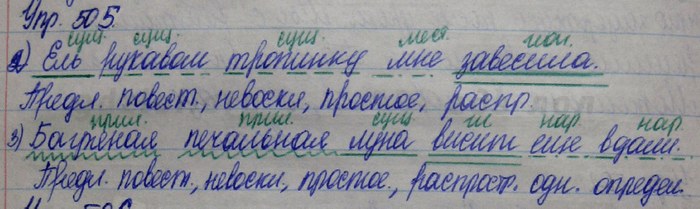 Упр. 505
сущ. сущ. сущ. мест. гл.
2) Ель рукавом тропинку мне завесила.
Предл. повест., невоскл, простое, распр.
прил. прил. сущ. гл. нар. нар.
3) Багряная печальная луна висит еще вдали.
Предл. повест., невоскл, простое, распрост. одн. определ.